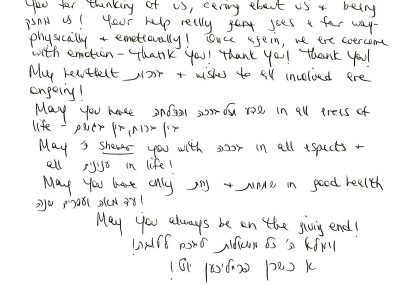 You for thinking of us, caring about us & being
! Your help really goes a far way-
physically & emotionally! Once again, we are overcome
with emotion - Thank You! Thank You! Thank You!
My heartfelt ברכות & wishes to all involved are
ongoing!
May you have שפע וברכה והצלחה in all areas of
life -
May ה' shower you with ברכה in all aspects &
all ענינים in life!
May you have only שמחות & נחת in good health
עד מאה ועשרים שנה!
May you always be on the giving end!
וימלא ה' כל משאלות לבכם לטובה!
א כשר'ן פרייליכן יו"ט!